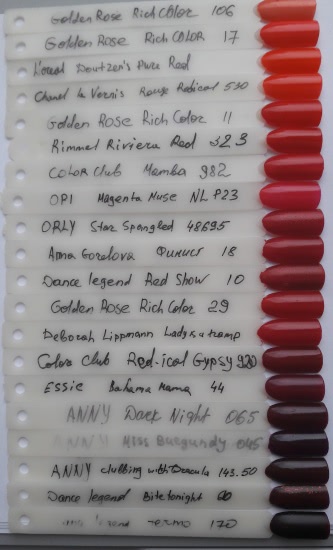 Golden Rose Rich Color 106
Golden Rose Rich Color 17
L'oreal Doutzen's Pure Red
Chanel le Vernis Rouge Radical 530
Golden Rose Rich Color 11
Rimmel Riviera Red 323
Color Club Mamba 982
OPI Magenta Muse NL P23
ORLY Star Spangled 48695
Anna Gorelova Финиш 18
Dance legend Red Show 10
Golden Rose Rich Color 29
Deborah Lippmann Lady is a tramp
Color Club Red-ical Gypsy 920
Essie Bahama Mama 44
ANNY Dark Night 065
ANNY Miss Burgundy 045
ANNY clubbing with Dracula 143.50
Dance legend Bite tonight
legend Termo 170